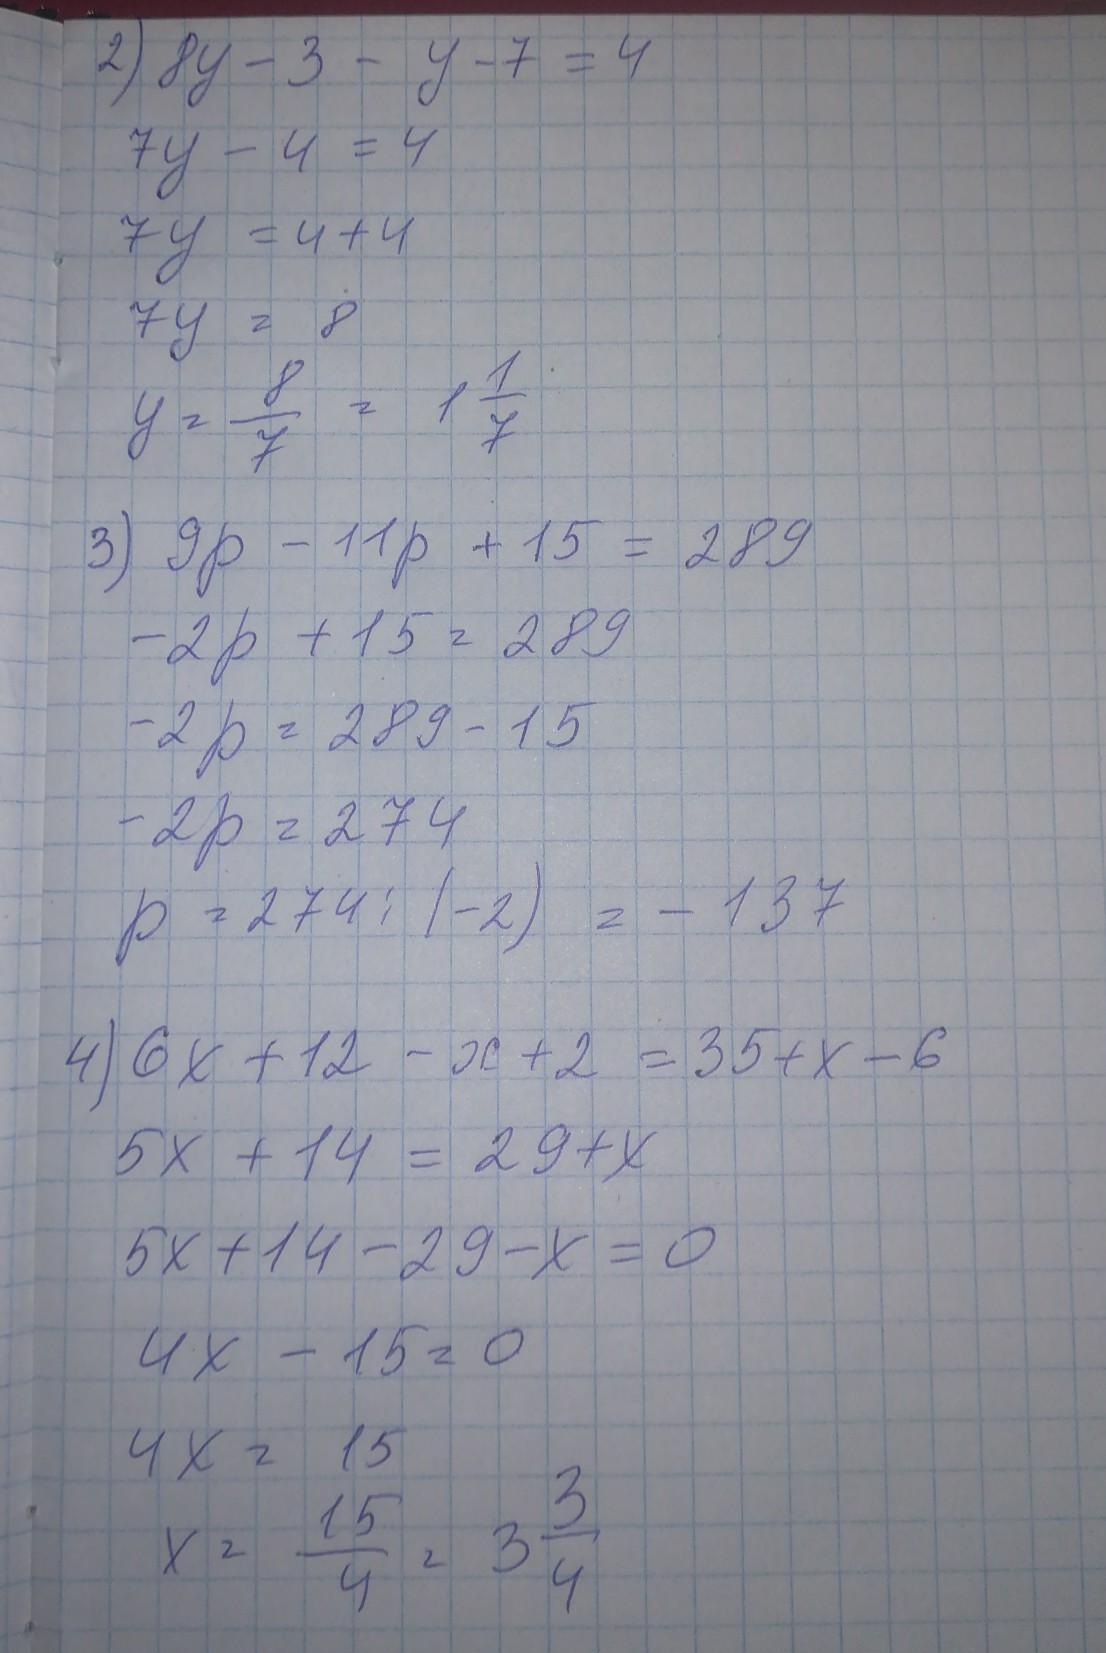 2) 8y - 3 - y - 7 = 4
7y - 4 = 4
7y = 4 + 4
7y = 8
y = 8/7 = 1 1/7
3) 9p - 11p + 15 = 289
-2p + 15 = 289
-2p = 289 - 15
-2p = 274
p = 274 : (-2) = -137
4) 6x + 12 - x + 2 = 35 + x - 6
5x + 14 = 29 + x
5x + 14 - 29 - x = 0
4x - 15 = 0
4x = 15
x = 15/4 = 3 3/4